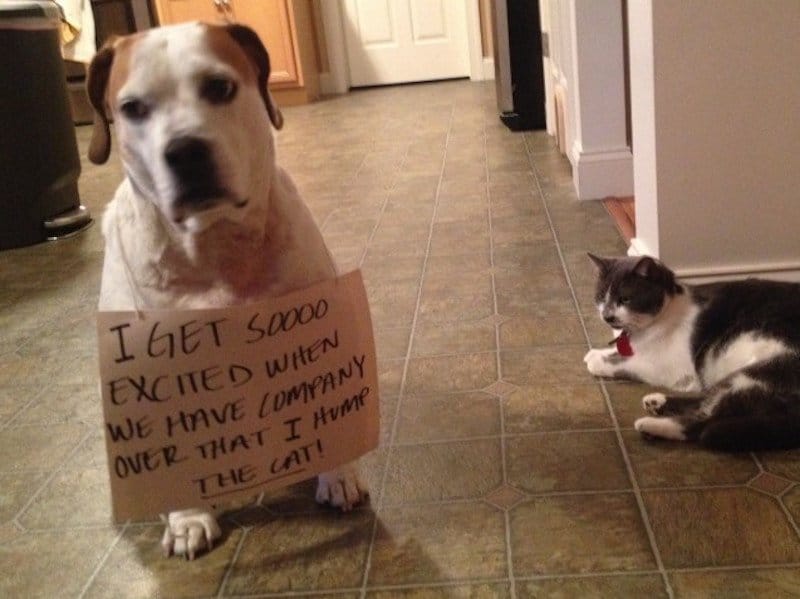 I GET SOOOO
EXCITED WHEN
WE HAVE COMPANY
OVER THAT I HUMP
THE CAT!